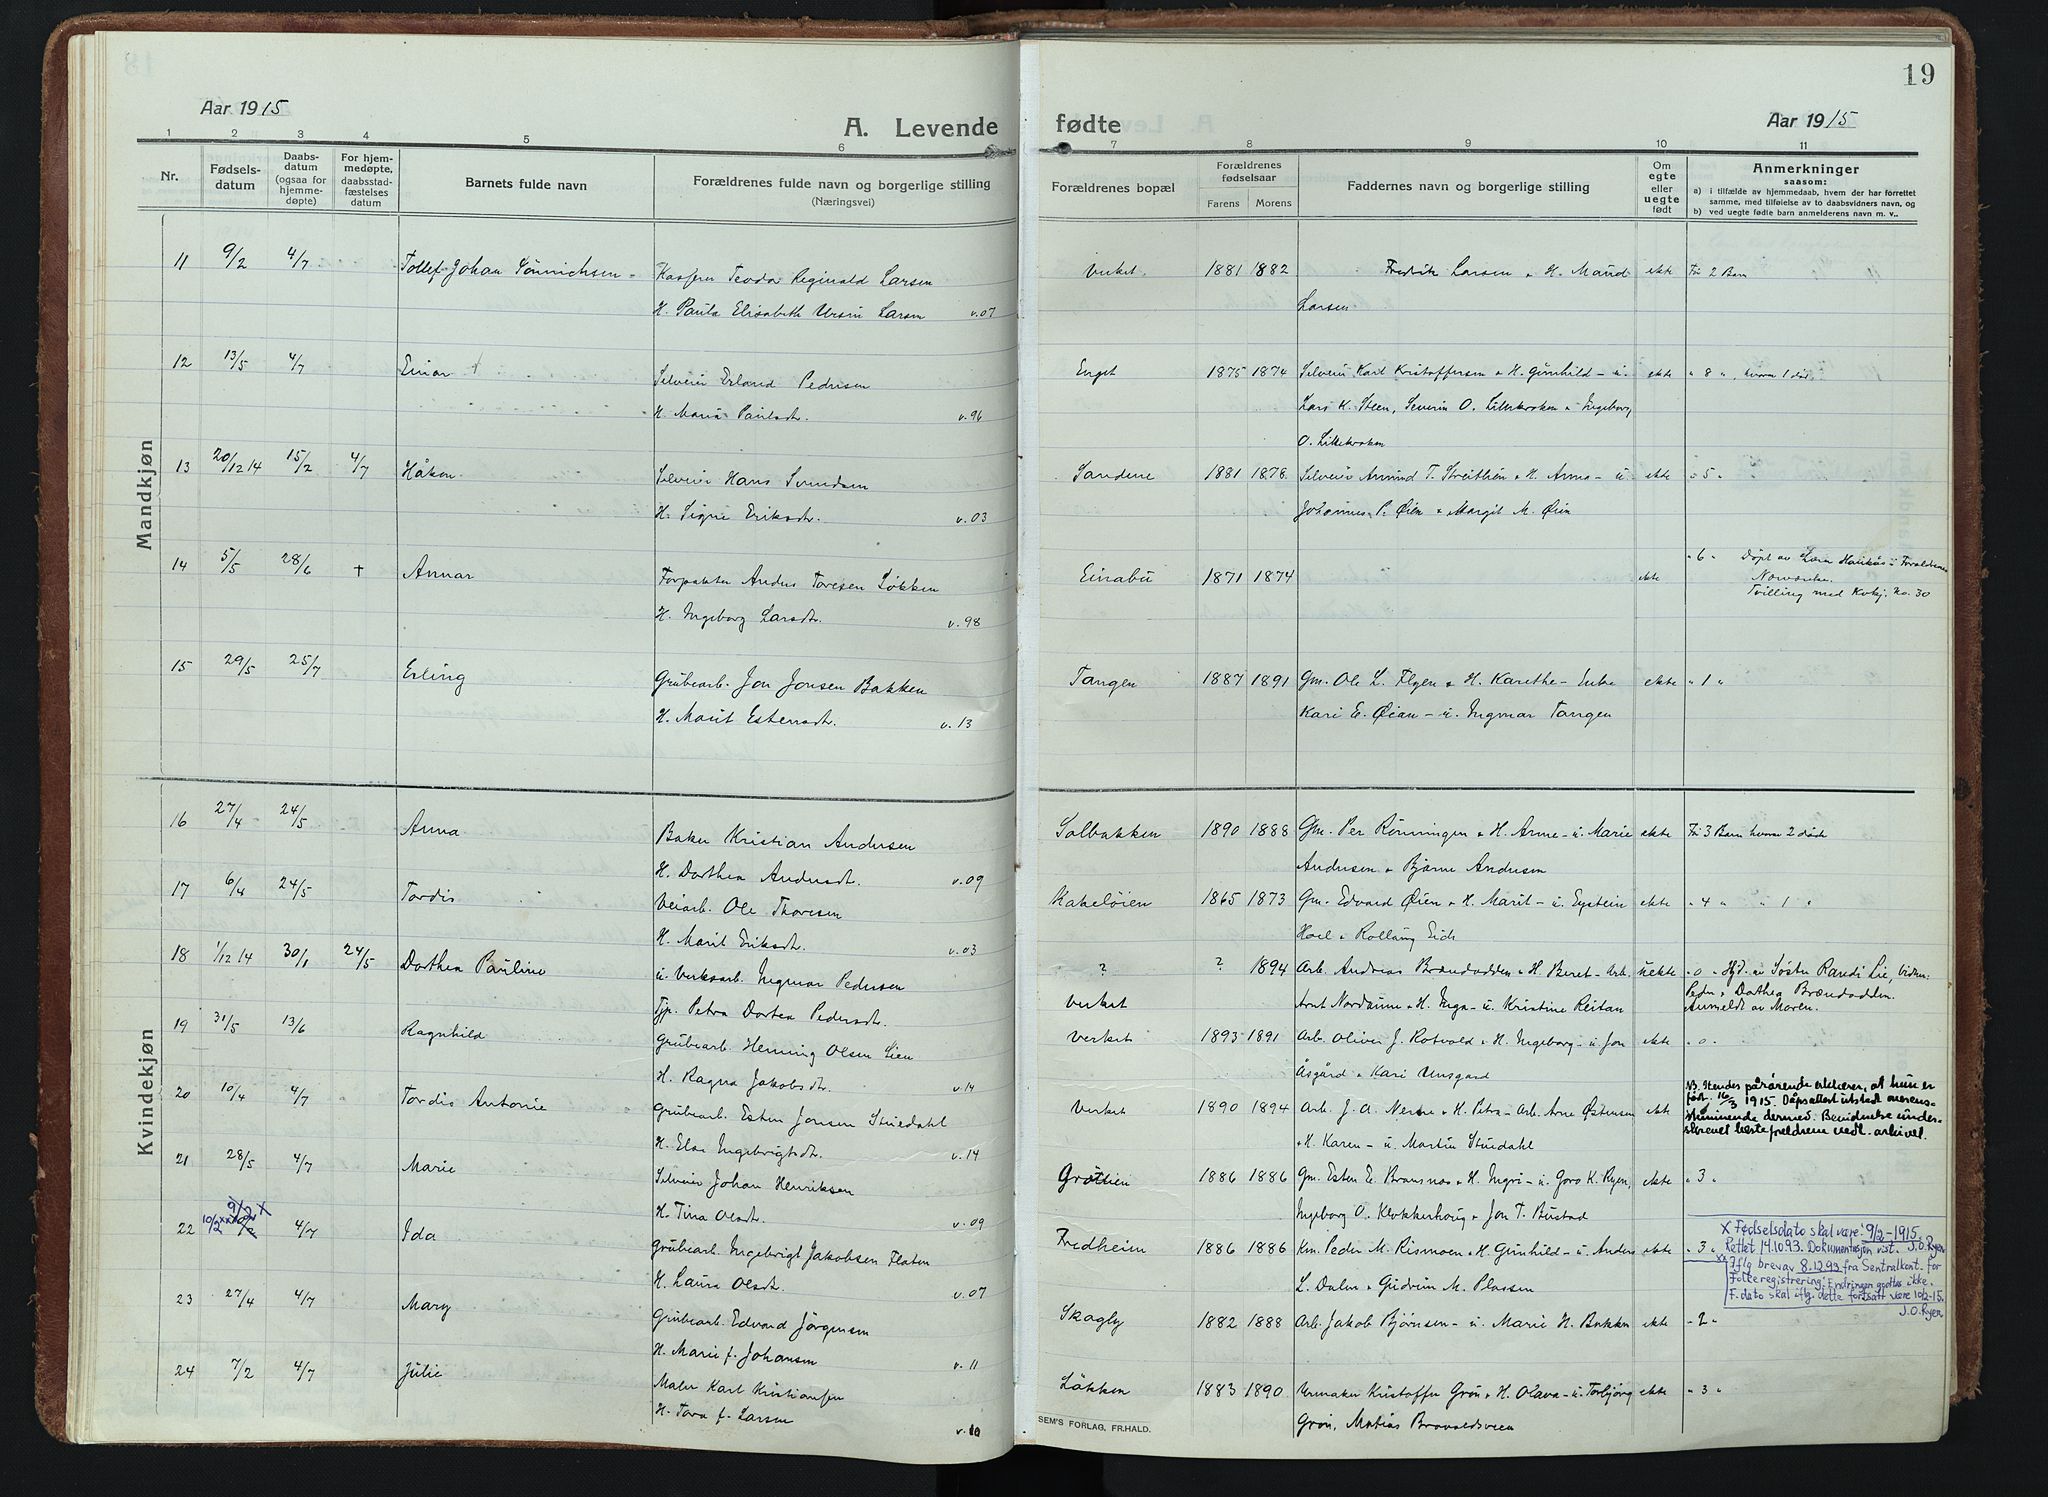 19
Aar 1915
A. Levende
fødte
Aar 1915
1 2 3 4 5 6 7 8 9 10 11
Nr.
Fødsels-
datum
Daabs-
datum
(ogsaa for
hjemme-
døpte)
For hjem-
medøpte,
daabsstad-
fæstelses
datum
Barnets fulde navn
Forældrenes fulde navn og borgerlige stilling
(Næringsvei)
Forældrenes bopæl
Forældrenes
fødselsaar
Farens Morens
Faddernes navn og borgerlige stilling
Om
egte
eller
uegte
født
Anmerkninger
saasom:
a) i tilfælde av hjemmedaab, hvem der har forrettet
samme, med tilføielse av to daabsvidners navn, og
b) ved uegte fødte barn anmelderens navn m. v..
Mandkjøn
11 9/2 4/7 Tollef Johan Sønnichsen Teodor Reginald Larsen Verket 1881 1882 Fredrik Larsen & H. Maud ekte Før 2 Barn
H. Paula Elisabeth Ursin Larsen v. 07 Larsen
12 13/5 4/7 Einar Selveier Erland Pedersen Enget 1875 1874 Selveier Karl Kristoffersen & H. Gunhild - u. ekte " 8 ", hvorav 1 død.
H. Maria Paulsdtr. v. 96 Lars K. Steen, Severin O. Lillekroken & Ingeborg
O. Lillekroken
13 20/12 14 15/2 4/7 Håkon Selveier Hans Svendsen Sandene 1881 1878 Selveier Amund T. Streithen & H. Anna - u. ekte " 5 "
H. Signe Eriksdtr. v. 03 Johannes P. Øien & Margit M. Øien
14 5/5 28/6 + Annar Forpakter Anders Toresen Løkken Einabu 1871 1874 ekte " 6 " Døpt av Haukås i Forældrenes
H. Ingeborg Larsdtr. v. 98 Nærværelse.
Tvilling med Kvkj. No. 30
15 29/5 25/7 Erling Grubearb. Jon Jonsen Bakken Tangen 1887 1891 Gm. Ole L. Flyen & H. Karethe - Enke ekte " 1 "
H. Marit Estensdtr. v. 13 Kari E. Øian - u. Ingmar Tangen
Kvindekjøn
16 27/4 24/5 Anna Baker Kristian Andersen Solbakken 1890 1888 Gm. Per Rønningen & H. Anne - u. Marie ekte Før 3 Barn hvorav 2 døde
H. Dorthea Andersdt. v. 09 Andersen & Bjarne Andersen
17 6/4 24/5 Tordis Veiarb. Ole Thoresen Kakeløien 1865 1873 Gm. Edvard Øien & H. Marit - u. Eystein ekte " 4 " " 1 "
H. Marit Eriksdtr. v. 03 Hoel & Eide
18 1/12 14 30/1 24/5 Dorthea Pauline u. Verksarb. Ingmar Pedersen ? ? 1894 Arb. Andreas Brændodden & H. Beret - Arb. uekte " 0 " Hjd. av Søster Randi Lie, Vidner:
Tjp. Petra Dortea Pedersdtr. Verket Arnt Nordaune & H. Inga - u. Kristine Reitan Peder & Dorthea Brændodden.
Anmeldt av Moren.
19 31/5 13/6 Ragnhild Grubearb. Henning Olsen Lien Verket 1893 1891 Arb. Oliver J. Rotvold & H. Ingeborg - u. Jon ekte " 0 "
H. Ragna Jakobsdtr. v. 14 Åsgård & Kari Unsgard
20 10/4 4/7 Tordis Antonie Grubearb. Esten Jonsen Stuedahl Verket 1890 1894 Arb. J. A. & H. Petra - Arb. Arne Østensen ekte
H. Else Ingebrigtsdtr. v. 14 & H. Karen - u. Martin Stuedahl
NB. Hendes pårørende erklærer, at hun er
født 16/3 1915. Dåpsattest utstedt overens-
stemmende dermed. Bevidnelse under-
skrevet besteforeldrene vedl. arkivet.
21 28/5 4/7 Marie Selveier Johan Henriksen Grøttien 1886 1886 Gm. Esten E. Bransnes & H. Ingri - u. Goro K. Ryen, ekte " 3 "
H. Tina Olsdt. v. 09 Ingeborg O. Klokkerhaug & Jon T. Bustad
22 10/2 xx 9/2 x 4/7 Ida Grubearb. Ingebrigt Jakobsen Flaten Fredheim 1886 1886 Km. Peder M. Rismoen & H. Gunhild - u. Anders ekte " 3 "
H. Laura Olsdt. v. 07 L. Dalen & Gudrun M. Plassen
x Fødselsdato skal være: 9/2 - 1915.
Rettet 14.10.93. Dokumentasjon vist. J.O.Ryen
xx Iflg brev av 8.12.93 fra Sentralkont. for
Folkeregistrering: Endringen godtas ikke.
F. dato skal iflg. dette fortsatt være 10/2-15.
J.O.Ryen
23 27/4 4/7 Mary Grubearb. Edvard Jörgensen Skogly 1882 1888 Arb. Jakob Bjørnsen - u. Marie H. Bakken ekte " 2 "
H. Marie f. Johansen v. 11
24 7/2 4/7 Julie Maler Karl Kristiansen Løkken 1883 1890 Urmaker Kristoffer Grøn & H. Olava - u. Torbjørg ekte " 3 "
H. Tora f. Larsen v. 10 Grøn, Matias
SEM'S FORLAG, FR.HALD.